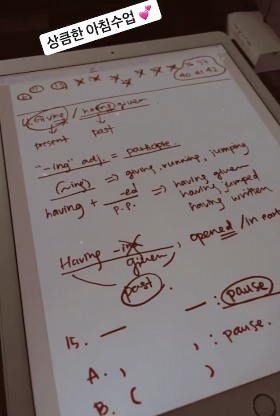 상큼한 아침수업 💕
40 41 42
Giving / having given
present past
"-ing" adj. = participle.
(~ing) ⇒ giving, running, jumping
having + -ed ⇒ having given
p.p. having jumped
having written
Having -ing
given, opened /in
past
15. — — : pause
A. , , : pause.
B. ( )